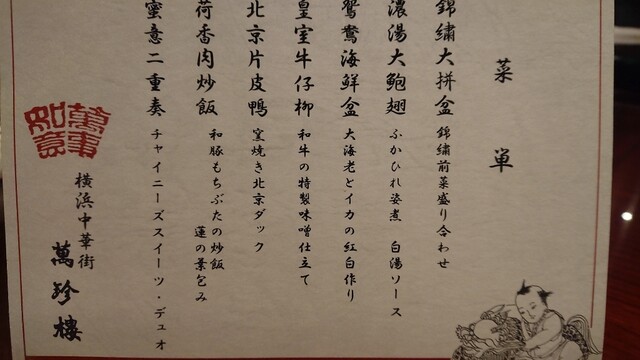 菜単
錦繍大拼盆
錦繍前菜盛り合わせ
濃湯大鮑翅
ふかひれ姿煮 白湯ソース
鴛鴦海鮮盆
大海老とイカの紅白作り
皇室牛仔柳
和牛の特製味噌仕立て
北京片皮鴨
窯焼き北京ダック
荷香肉炒飯
和豚もちぶたの炒飯
蓮の葉包み
蜜意二重奏
チャイニーズスイーツ・デュオ
萬事如意
横浜中華街
萬珍樓